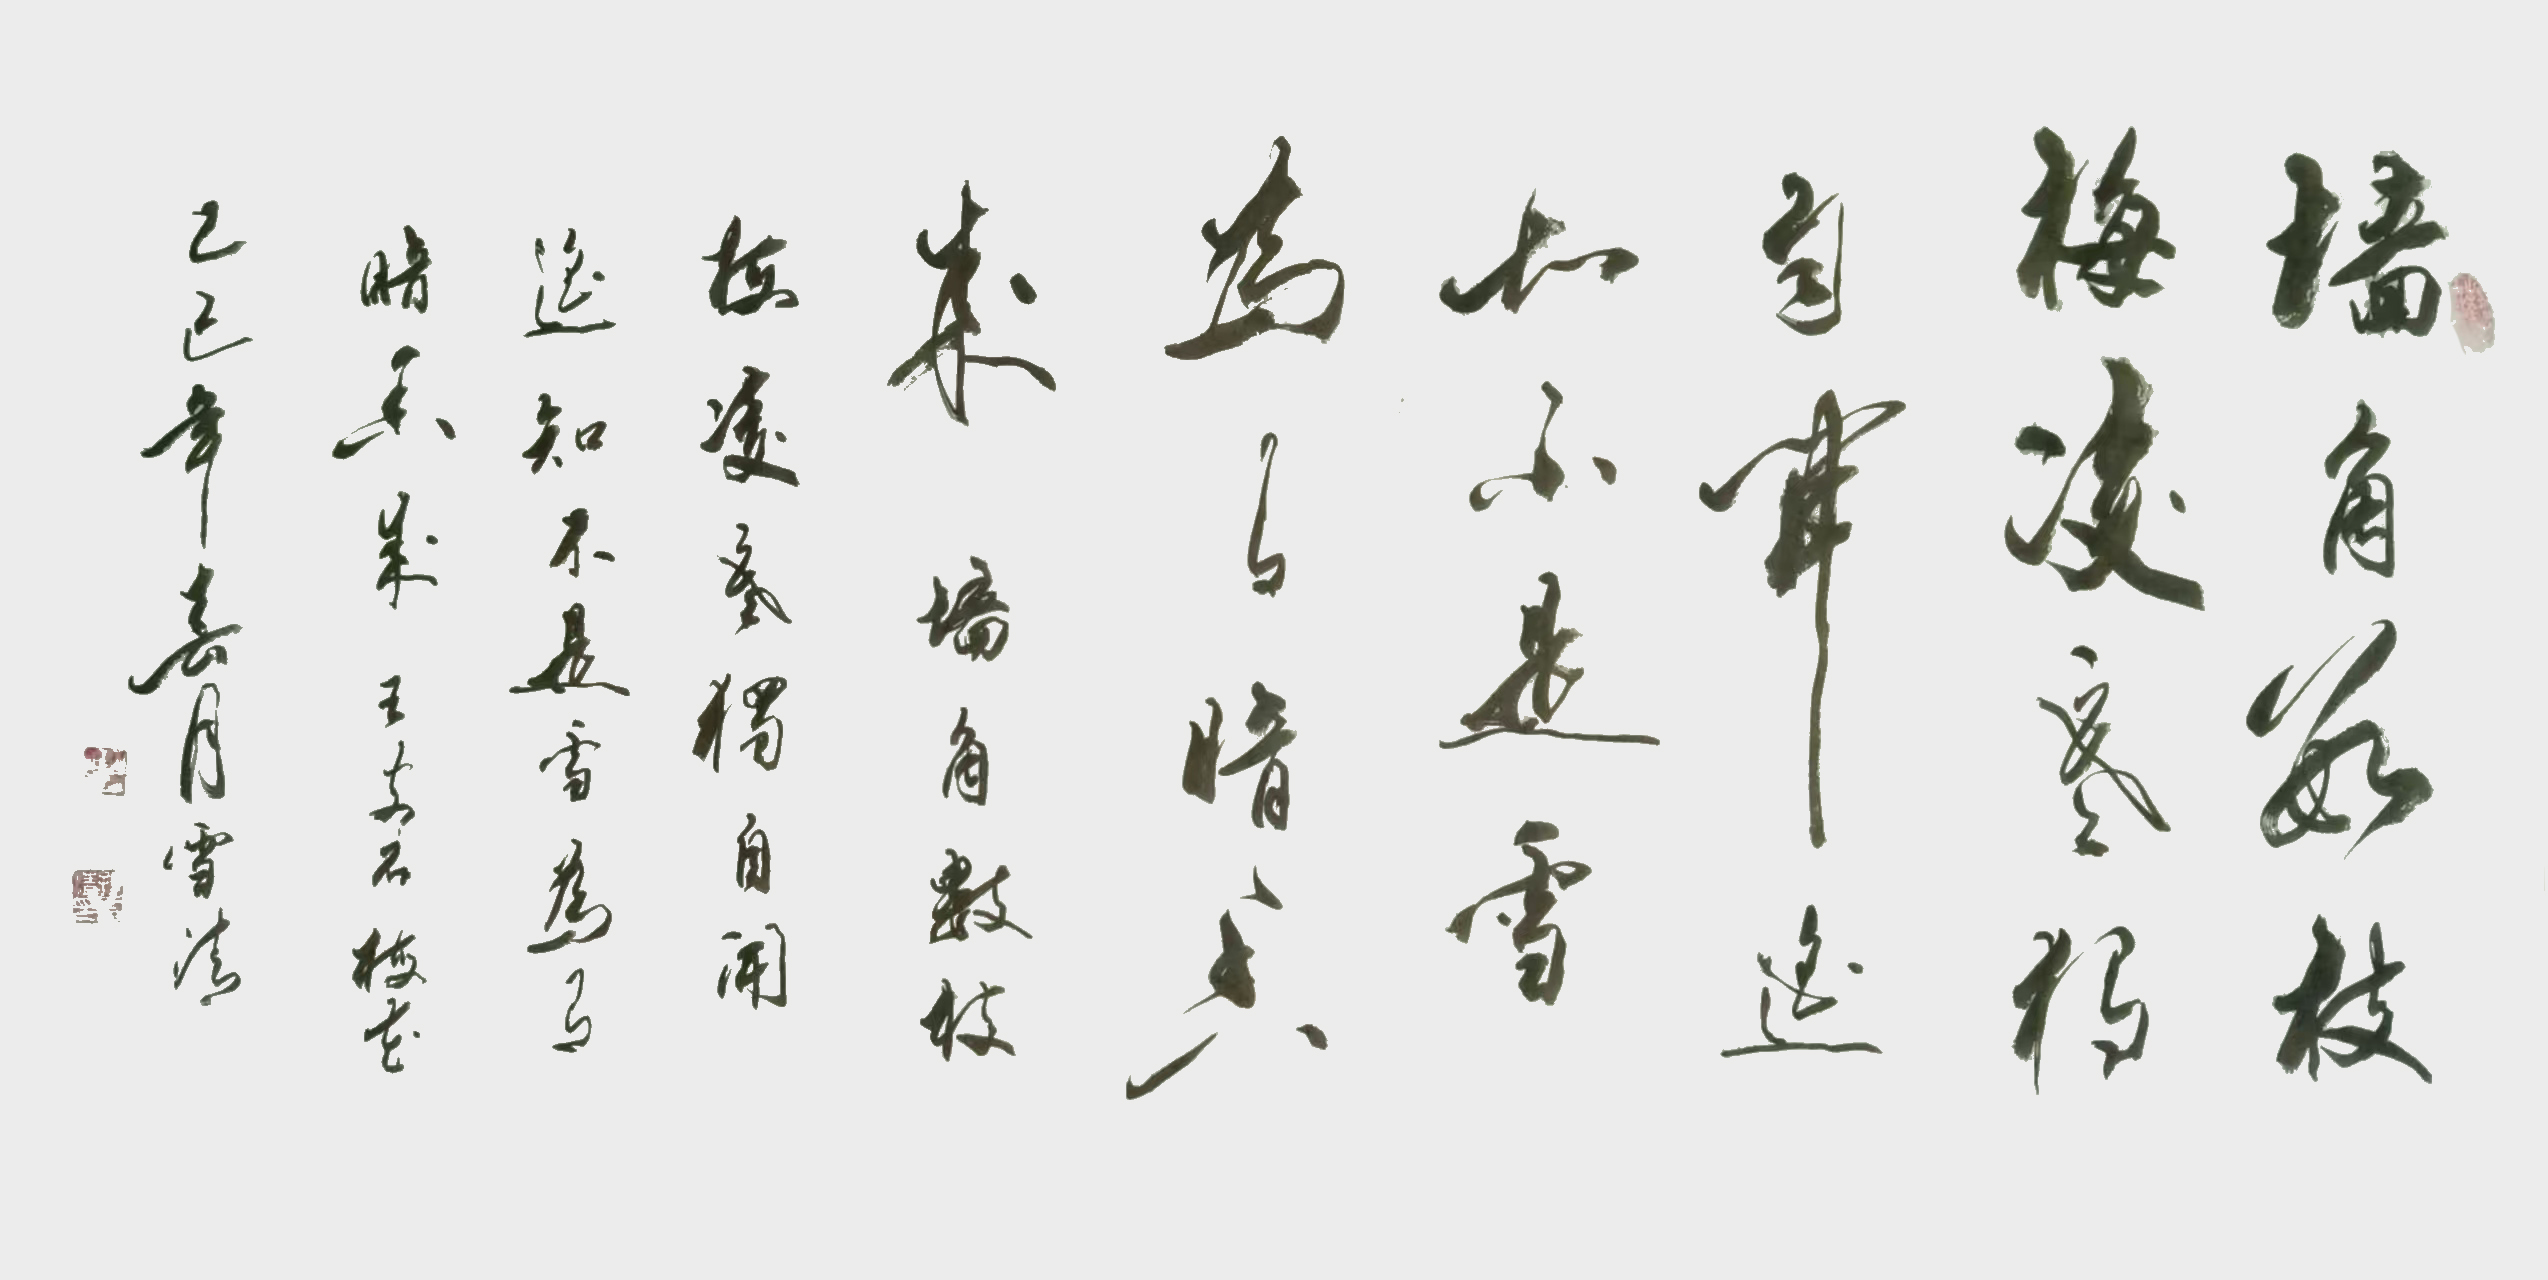 墙角数枝
梅凌寒独
自開遥
知不是雪
為有暗香
来
墙角數枝
梅凌寒獨自開
遥知不是雪為有
暗香来 王安石梅花
己巳年嘉月雪涛